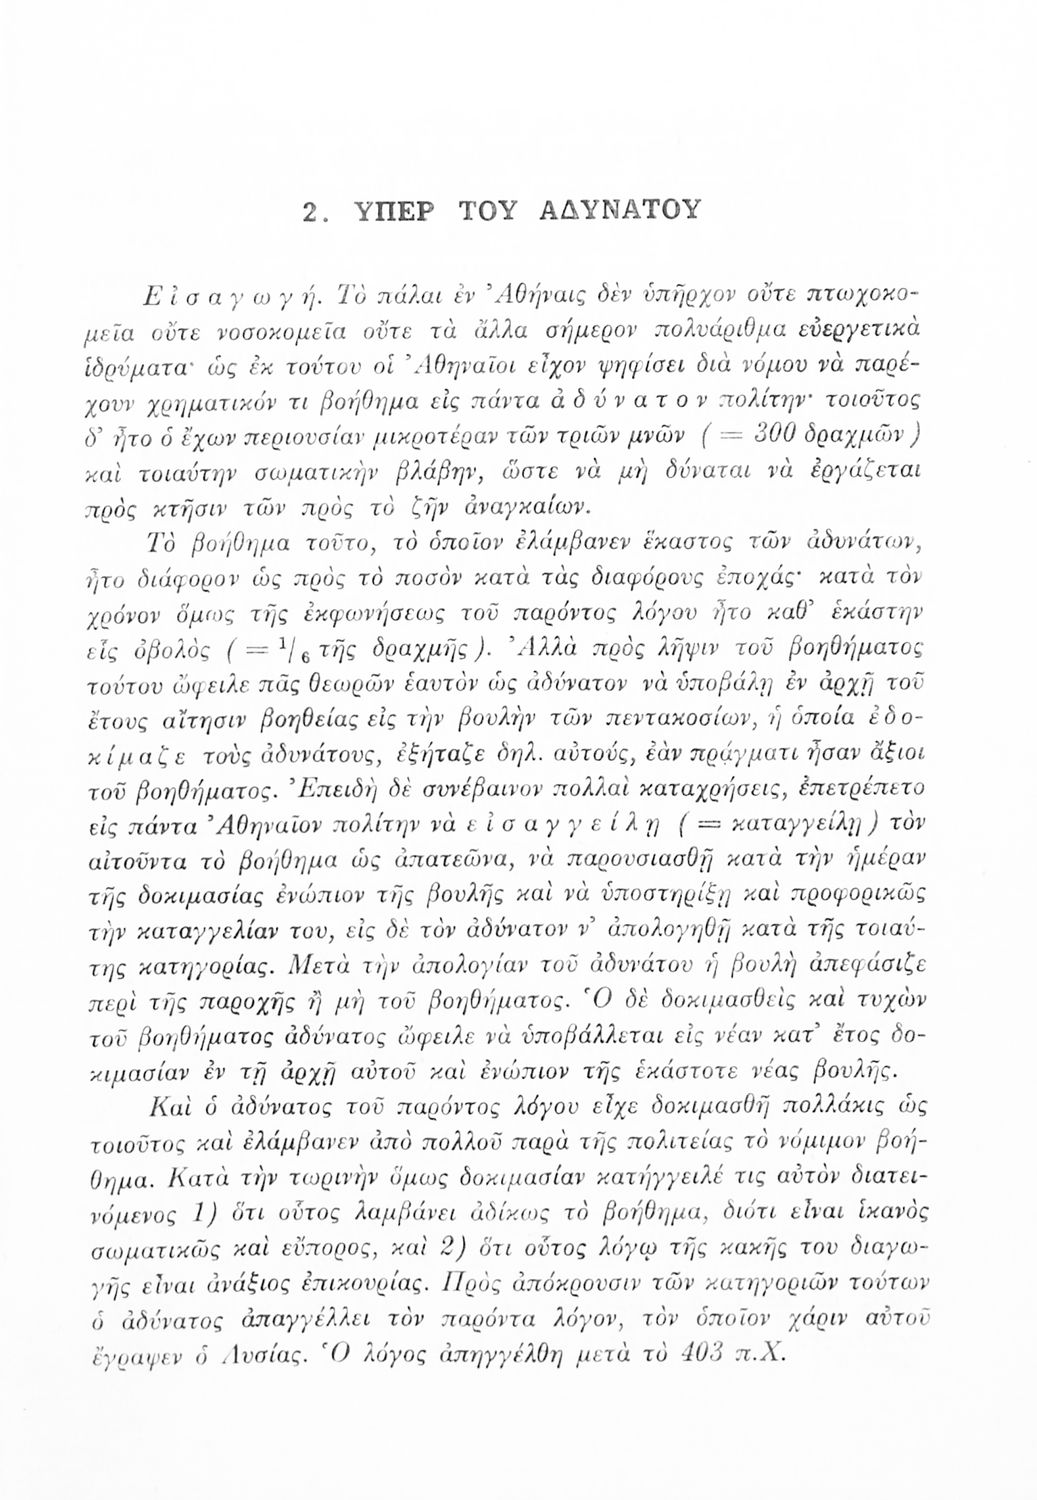 2. ΥΠΕΡ ΤΟΥ ΑΔΥΝΑΤΟΥ
Εἰσαγωγή. Τὸ πάλαι ἐν Ἀθήναις δὲν ὑπῆρχον οὔτε πτωχοκο-
μεῖα οὔτε νοσοκομεῖα οὔτε τὰ ἄλλα σήμερον πολυάριθμα εὐεργετικὰ
ἱδρύματα· ὡς ἐκ τούτου οἱ Ἀθηναῖοι εἶχον ψηφίσει διὰ νόμου νὰ παρέ-
χουν χρηματικόν τι βοήθημα εἰς πάντα ἀδύνατον πολίτην· τοιοῦτος
δ’ ἦτο ὁ ἔχων περιουσίαν μικροτέραν τῶν τριῶν μνῶν ( = 300 δραχμῶν )
καὶ τοιαύτην σωματικὴν βλάβην, ὥστε νὰ μὴ δύναται νὰ ἐργάζεται
πρὸς κτῆσιν τῶν πρὸς τὸ ζῆν ἀναγκαίων.
Τὸ βοήθημα τοῦτο, τὸ ὁποῖον ἐλάμβανεν ἕκαστος τῶν ἀδυνάτων,
ἦτο διάφορον ὡς πρὸς τὸ ποσὸν κατὰ τὰς διαφόρους ἐποχάς· κατὰ τὸν
χρόνον ὅμως τῆς ἐκφωνήσεως τοῦ παρόντος λόγου ἦτο καθ’ ἑκάστην
εἷς ὀβολὸς ( = 1/6 τῆς δραχμῆς ). Ἀλλὰ πρὸς λῆψιν τοῦ βοηθήματος
τούτου ὤφειλε πᾶς θεωρῶν ἑαυτὸν ὡς ἀδύνατον νὰ ὑποβάλῃ ἐν ἀρχῇ τοῦ
ἔτους αἴτησιν βοηθείας εἰς τὴν βουλὴν τῶν πεντακοσίων, ἡ ὁποία ἐδο-
κίμαζε τοὺς ἀδυνάτους, ἐξήταζε δηλ. αὐτούς, ἐὰν πράγματι ἦσαν ἄξιοι
τοῦ βοηθήματος. Ἐπειδὴ δὲ συνέβαινον πολλαὶ καταχρήσεις, ἐπετρέπετο
εἰς πάντα Ἀθηναῖον πολίτην νὰ εἰσαγγείλῃ ( = καταγγείλῃ ) τὸν
αἰτοῦντα τὸ βοήθημα ὡς ἀπατεῶνα, νὰ παρουσιασθῇ κατὰ τὴν ἡμέραν
τῆς δοκιμασίας ἐνώπιον τῆς βουλῆς καὶ νὰ ὑποστηρίξῃ καὶ προφορικῶς
τὴν καταγγελίαν του, εἰς δὲ τὸν ἀδύνατον ν’ ἀπολογηθῇ κατὰ τῆς τοιαύ-
της κατηγορίας. Μετὰ τὴν ἀπολογίαν τοῦ ἀδυνάτου ἡ βουλὴ ἀπεφάσιζε
περὶ τῆς παροχῆς ἢ μὴ τοῦ βοηθήματος. Ὁ δὲ δοκιμασθεὶς καὶ τυχὼν
τοῦ βοηθήματος ἀδύνατος ὤφειλε νὰ ὑποβάλλεται εἰς νέαν κατ’ ἔτος δο-
κιμασίαν ἐν τῇ ἀρχῇ αὐτοῦ καὶ ἐνώπιον τῆς ἑκάστοτε νέας βουλῆς.
Καὶ ὁ ἀδύνατος τοῦ παρόντος λόγου εἶχε δοκιμασθῆ πολλάκις ὡς
τοιοῦτος καὶ ἐλάμβανεν ἀπὸ πολλοῦ παρὰ τῆς πολιτείας τὸ νόμιμον βοή-
θημα. Κατὰ τὴν τωρινὴν ὅμως δοκιμασίαν κατήγγειλέ τις αὐτὸν διατει-
νόμενος 1) ὅτι οὗτος λαμβάνει ἀδίκως τὸ βοήθημα, διότι εἶναι ἱκανὸς
σωματικῶς καὶ εὔπορος, καὶ 2) ὅτι οὗτος λόγῳ τῆς κακῆς του διαγω-
γῆς εἶναι ἀνάξιος ἐπικουρίας. Πρὸς ἀπόκρουσιν τῶν κατηγοριῶν τούτων
ὁ ἀδύνατος ἀπαγγέλλει τὸν παρόντα λόγον, τὸν ὁποῖον χάριν αὐτοῦ
ἔγραψεν ὁ Λυσίας. Ὁ λόγος ἀπηγγέλθη μετὰ τὸ 403 π.Χ.